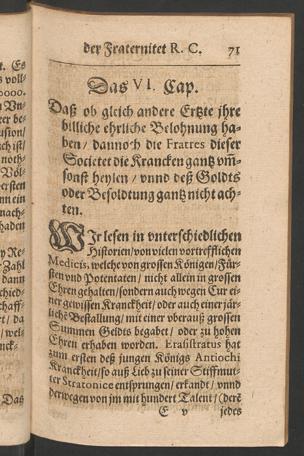 der Fraternitet R. C. 71
Das VI. Cap.
Daß ob gleich andere Ertzte jhre
billiche ehrliche Belohnung ha-
ben / dannoch die Fratres dieser
Societet die Krancken gantz vm̃-
sonst heylen / vnnd deß Goldts
oder Besoldtung gantz nicht ach-
ten.
WIr lesen in vnterschiedlichen
Historien / von vielen vortrefflichen
Medicis, welche von grossen Königen / Für-
sten vnd Potentaten / nicht allein in grossen
Ehren gehalten / sondern auch wegen Curi-
ner gewissen Kranckheit / oder auch einer jär-
lichẽ Bestallung / mit einer vberauß grossen
Summen Geldts begabet / oder zu hohen
Ehren erhaben worden. Erasistratus hat
zum ersten deß jungen Königs Antiochi
Kranckheit / so auß Lieb zu seiner Stiffmut-
ter Stratonice entsprungen / erkandt / vnnd
derwegen von jm mit hundert Talent / (derẽ
E v jedes
Das